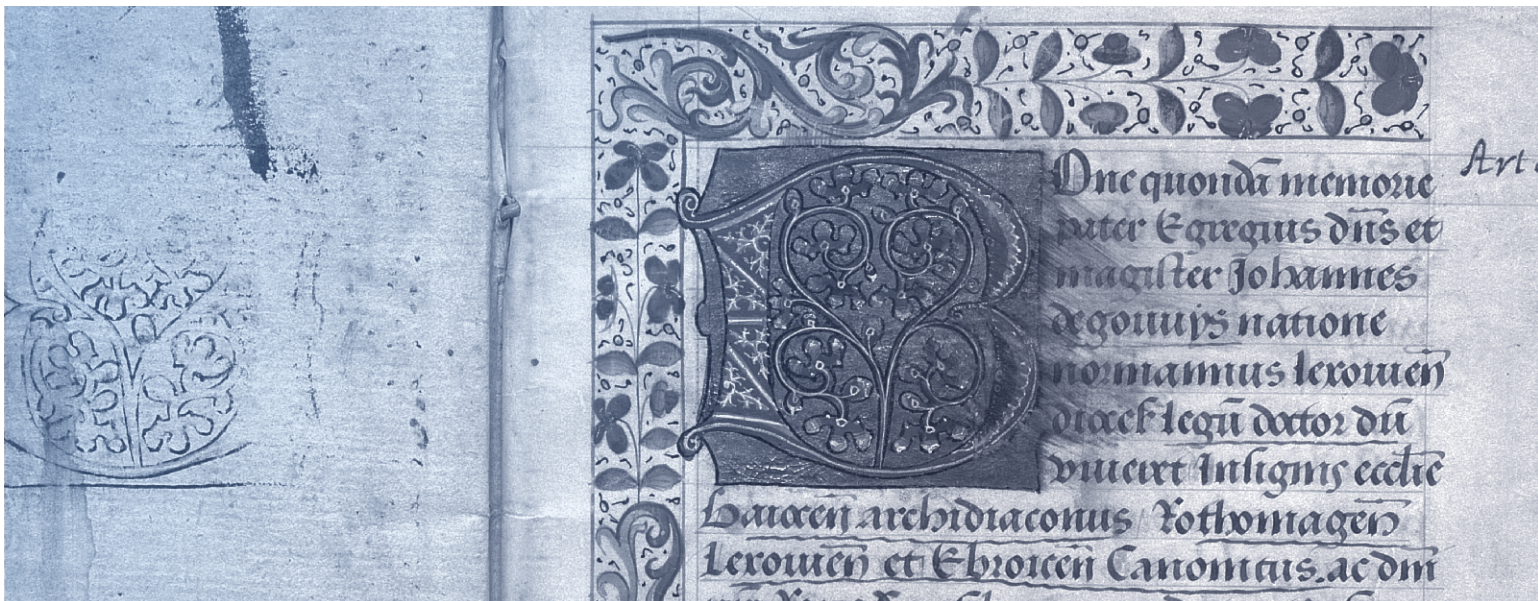 Bone quondā memorie Art
pater Egregius dn̄s et
magister Johannes
degouuys natione
normannus lexouien̄
dioces̄ legū doctor dū
viueret Insignis eccl̄ie
baiocen̄ archidiaconus Rothomagen̄
Lexouien̄ et Ebroicen̄ Canonicus. ac dn̄i